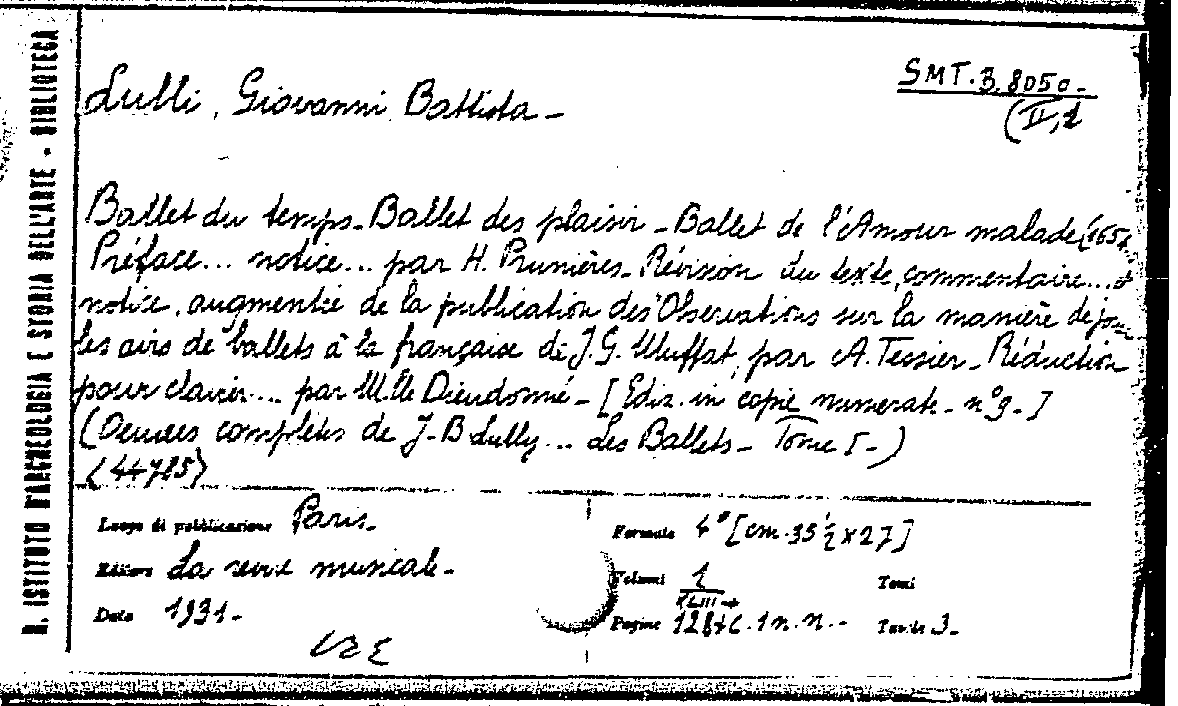 R. ISTITUTO D'ARCHEOLOGIA E STORIA DELL'ARTE - BIBLIOTECA
Lulli, Giovanni Battista -
SMT. B. 8050 -
(II,1
Ballet du temps - Ballet des plaisir - Ballet de l'Amour malade (1657
Préface... notice... par H. Prunières - Révision du texte, commentaire... et
notice, augmentée de la publication des Observations sur la manière de jouer
les airs de ballets à la française de J. G. Muffat, par A. Tessier - Réduction
pour clavier... par M.lle Dieudonné - [Ediz. in copie numerate - n° 9 - ]
(Oeuvres complètes de J-B Lully... Les Ballets - Tome I - )
(44785)
Luogo di pubblicazione Paris -
Editore La revue musicale -
Data 1931 -
Formato 4° [cm. 35 1/2 x 27]
Volumi 1 Tomi
XLIII +
Pagine 128 + c. 1 n. n. - Tavole 3 -